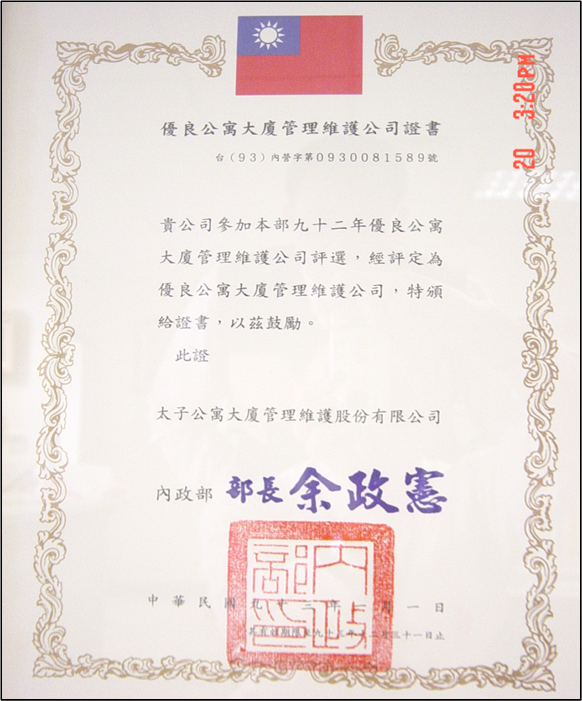 20 3:20PM
優良公寓大廈管理維護公司證書
台(93)內營字第0930081589號
貴公司參加本部九十二年優良公寓
大廈管理維護公司評選,經評定為
優良公寓大廈管理維護公司,特頒
給證書,以茲鼓勵。
此證
太子公寓大廈管理維護股份有限公司
內政部 部長余政憲
中華民國九十三年一月一日
內政部印